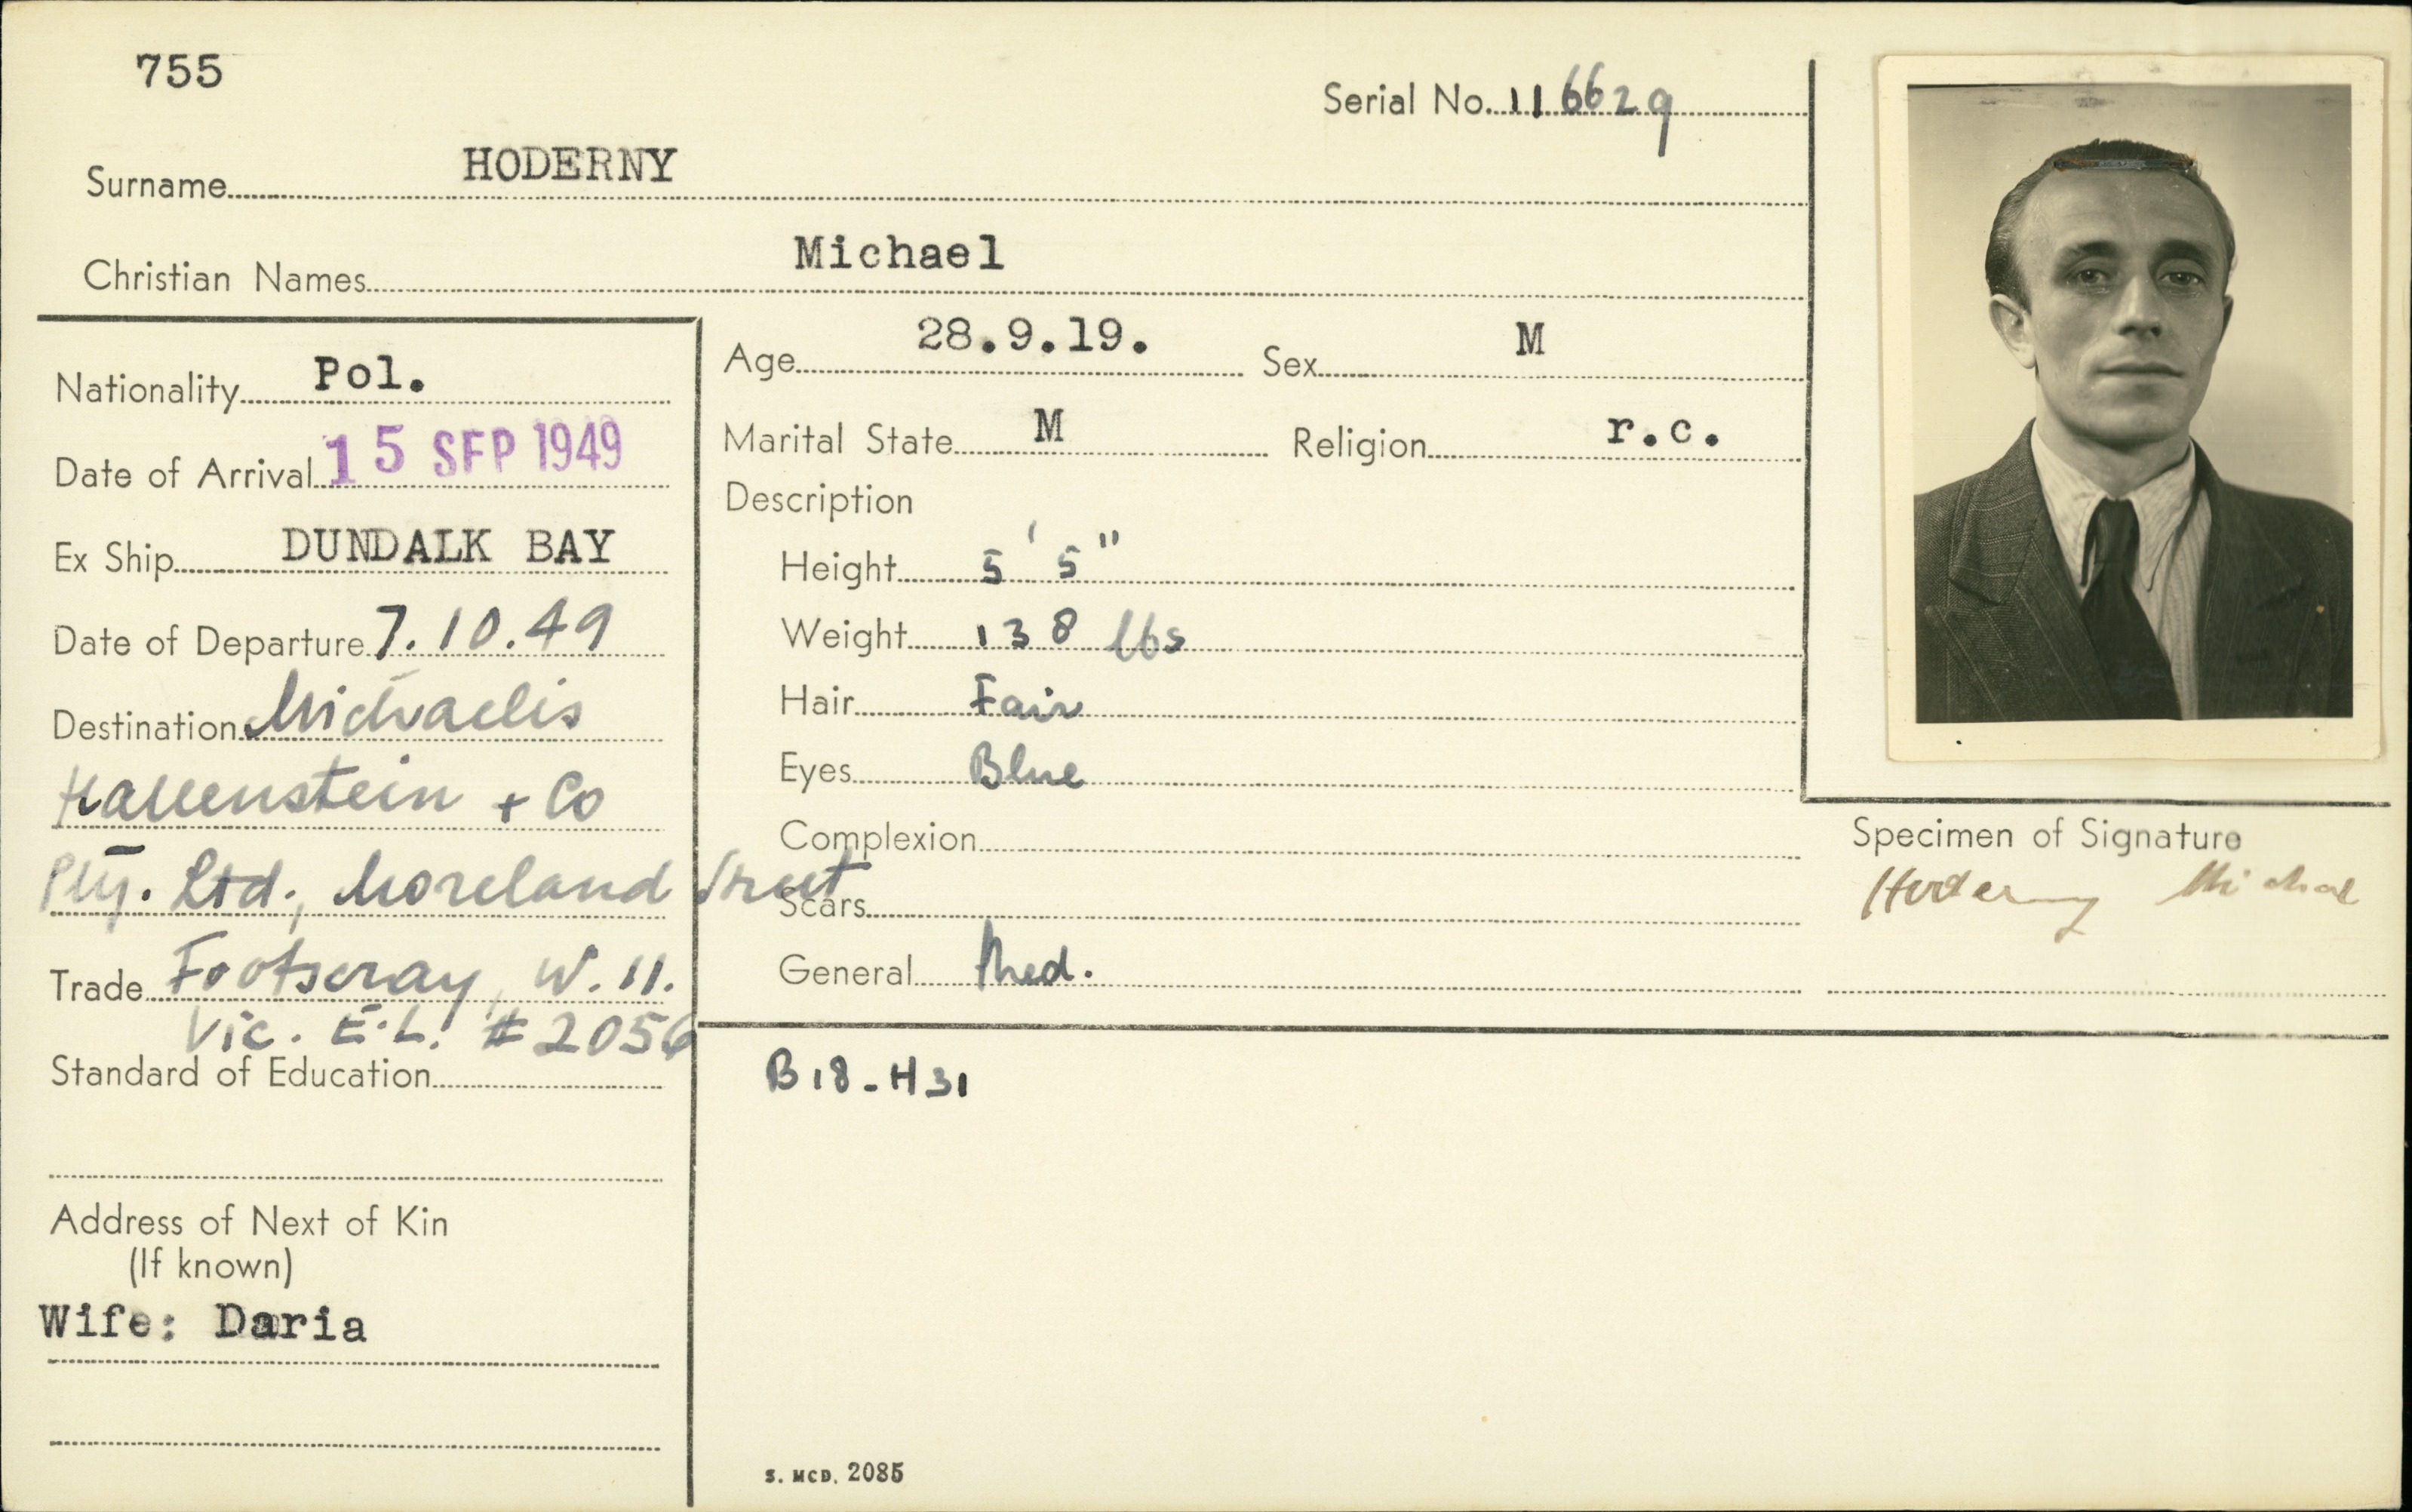 755
Serial No. 116629
Surname HODERNY
Christian Names Michael
Nationality Pol.
Date of Arrival 15 SEP 1949
Ex Ship DUNDALK BAY
Date of Departure 7.10.49
Destination Michaelis
Hallenstein + Co
Pty. Ltd., Moreland Street
Trade Footscray, W. 11.
Vic. E.L. #2056
Standard of Education
Address of Next of Kin
(If known)
Wife: Daria
Age 28.9.19. Sex M
Marital State M Religion r.c.
Description
Height 5' 5"
Weight 138 lbs
Hair Fair
Eyes Blue
Complexion
Scars
General Med.
B18-H31
S. MCD. 2085
Specimen of Signature
Hoderny Michal